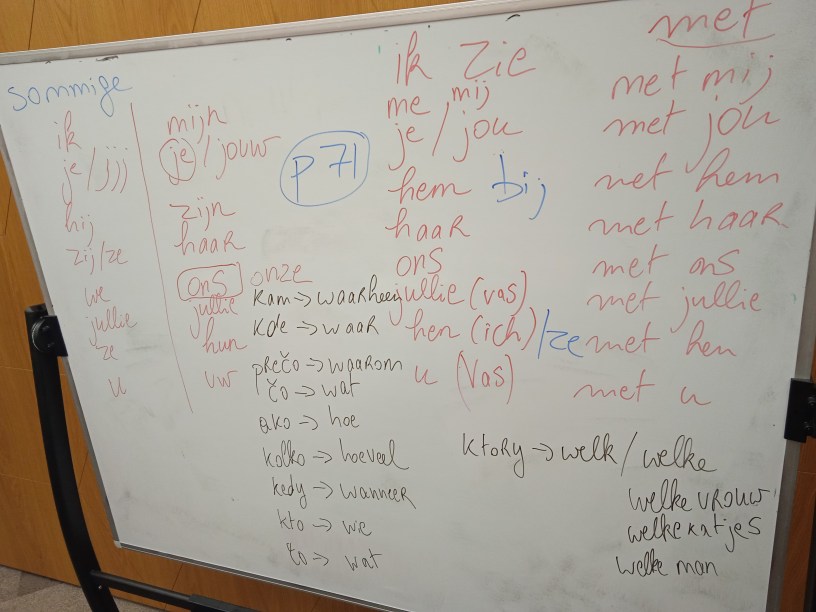 sommige
ik
je/jij
hij
zij/ze
we
jullie
ze
u
mijn
je/jouw
zijn
haar
ons onze
jullie
hun
uw
p 71
ik zie
me, mij
je/jou
hem bij
haar
ons
jullie (vas)
hen (ich)/ze
u (Vas)
met
met mij
met jou
met hem
met haar
met ons
met jullie
met hen
met u
kam → waarheen
kde → waar
prečo → waarom
čo → wat
ako → hoe
kolko → hoeveel
kedy → wanneer
kto → we
čo → wat
ktory → welk/welke
welke vrouw
welke katjes
welke man